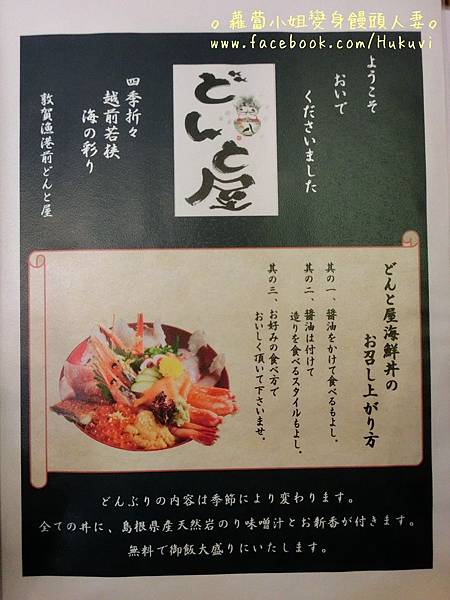 。蘿蔔小姐變身饅頭人妻。
www.facebook.com/Hukuvi
ようこそ
おいで
くださいました
どんと屋
四季折々
越前若狭
海の彩り
敦賀漁港前どんと屋
どんと屋海鮮丼の
お召し上がり方
其の一、醤油をかけて食べるもよし。
其の二、醤油は付けて
造りを食べるスタイルもよし。
其の三、お好みの食べ方で
おいしく頂いて下さいませ。
どんぶりの内容は季節により変わります。
全ての丼に、島根県産天然岩のり味噌汁とお新香が付きます。
無料で御飯大盛りにいたします。